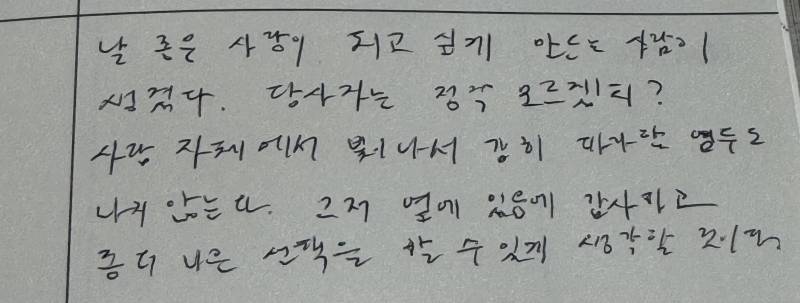 날 존은 사람이 되고 싶게 만드는 사람이
생겼다. 당사자는 정작 모르겠지?
사람 자체에서 빛이나서 감히 따라할 엄두도
나지 않는다. 그저 옆에 있음에 감사하고
좀 더 나은 선택을 할 수 있게 생각할 것이다.